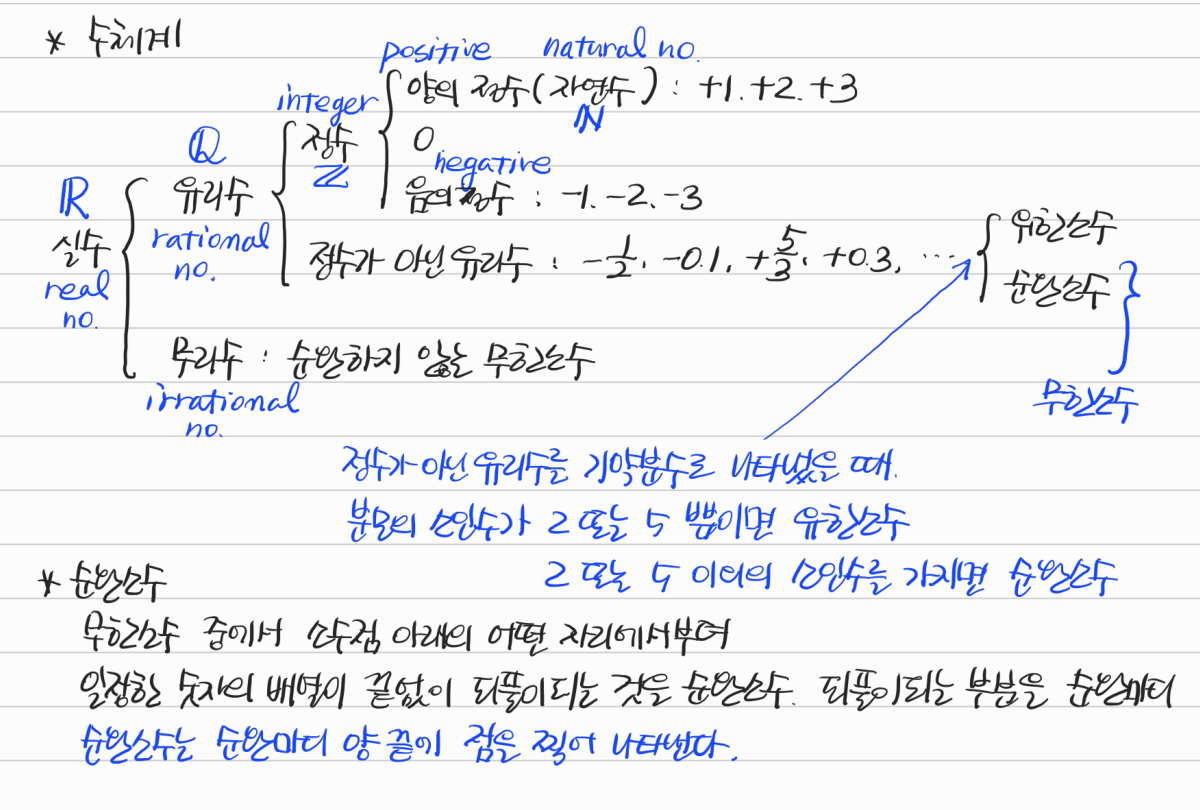 * 수체계
positive natural no.
integer 양의 정수(자연수) : +1. +2. +3
정수 ℕ
ℚ 0
ℤ negative
ℝ 유리수 음의 정수 : -1. -2. -3
실수 rational no. 정수가 아닌 유리수 : -1/2, -0.1, +5/3, +0.3, ⋯
유한소수
순환소수
real no.
무리수 : 순환하지 않는 무한소수
irrational no.
무한소수
정수가 아닌 유리수를 기약분수로 나타냈을 때.
분모의 소인수가 2 또는 5 뿐이면 유한소수
2 또는 5 이외의 소인수를 가지면 순환소수
* 순환소수
무한소수 중에서 소수점 아래의 어떤 자리에서부터
일정한 숫자의 배열이 끝없이 되풀이되는 것을 순환소수. 되풀이되는 부분을 순환마디
순환소수는 순환마디 양 끝에 점을 찍어 나타낸다.